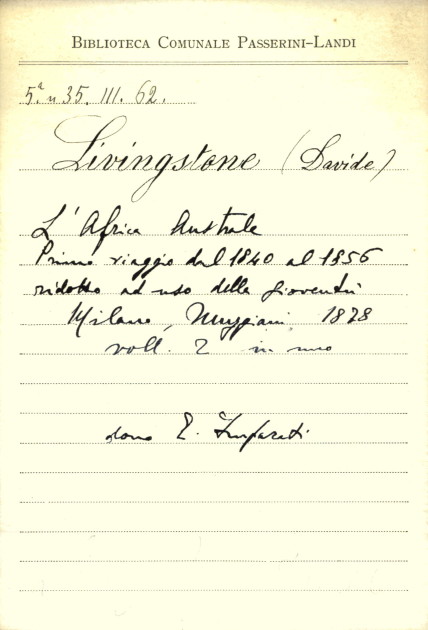 BIBLIOTECA COMUNALE PASSERINI-LANDI
5ª. n 35. III. 62.
Livingstone (Davide)
L'Africa Australe
Primo viaggio dal 1840 al 1856
ridotto ad uso della gioventù
Milano, Muggiani, 1878
voll. 2 in uno
dono E. Imparati